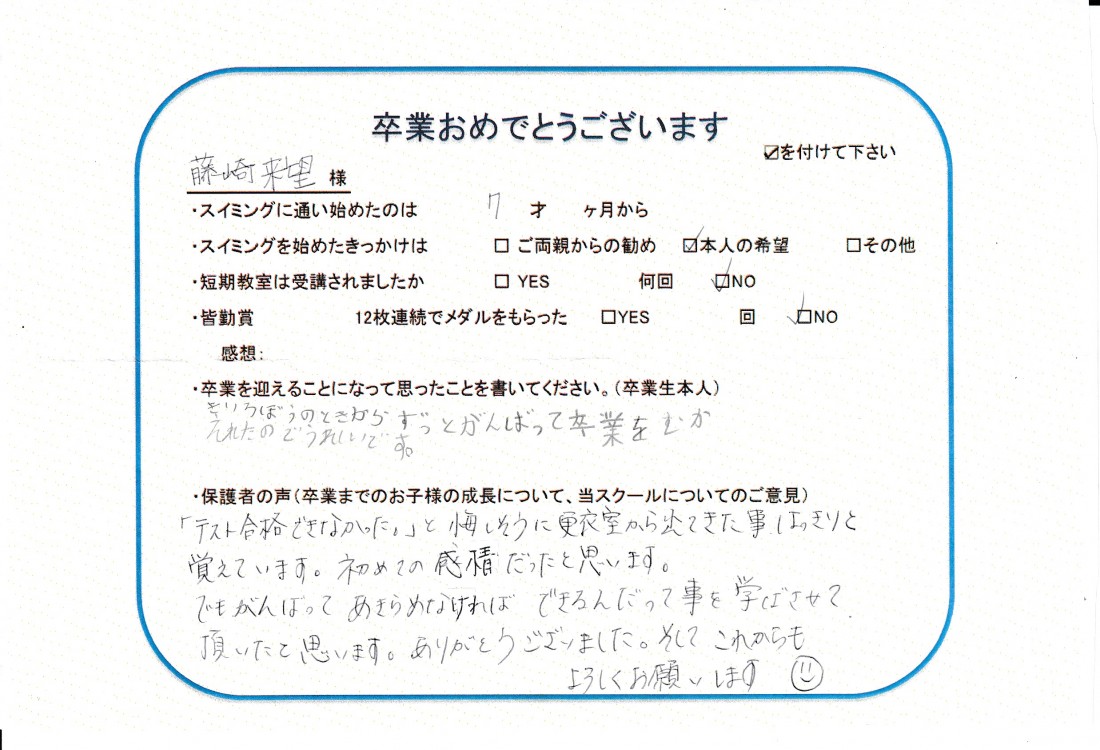 卒業おめでとうございます
☑を付けて下さい
藤崎来望 様
・スイミングに通い始めたのは 7 才 ヶ月から
・スイミングを始めたきっかけは □ ご両親からの勧め ☑本人の希望 □その他
・短期教室は受講されましたか □ YES 何回 ☑NO
・皆勤賞 12枚連続でメダルをもらった □YES 回 ☑NO
感想:
・卒業を迎えることになって思ったことを書いてください。(卒業生本人)
きいろぼうのときからずっとがんばって卒業をむか
えれたのでうれしいです。
・保護者の声(卒業までのお子様の成長について、当スクールについてのご意見)
「テスト合格できなかった。」と悔しそうに更衣室から出てきた事はっきりと
覚えています。初めての感情だったと思います。
でもがんばってあきらめなければできるんだって事を学ばさせて
頂いたと思います。ありがとうございました。そしてこれからも
よろしくお願いします